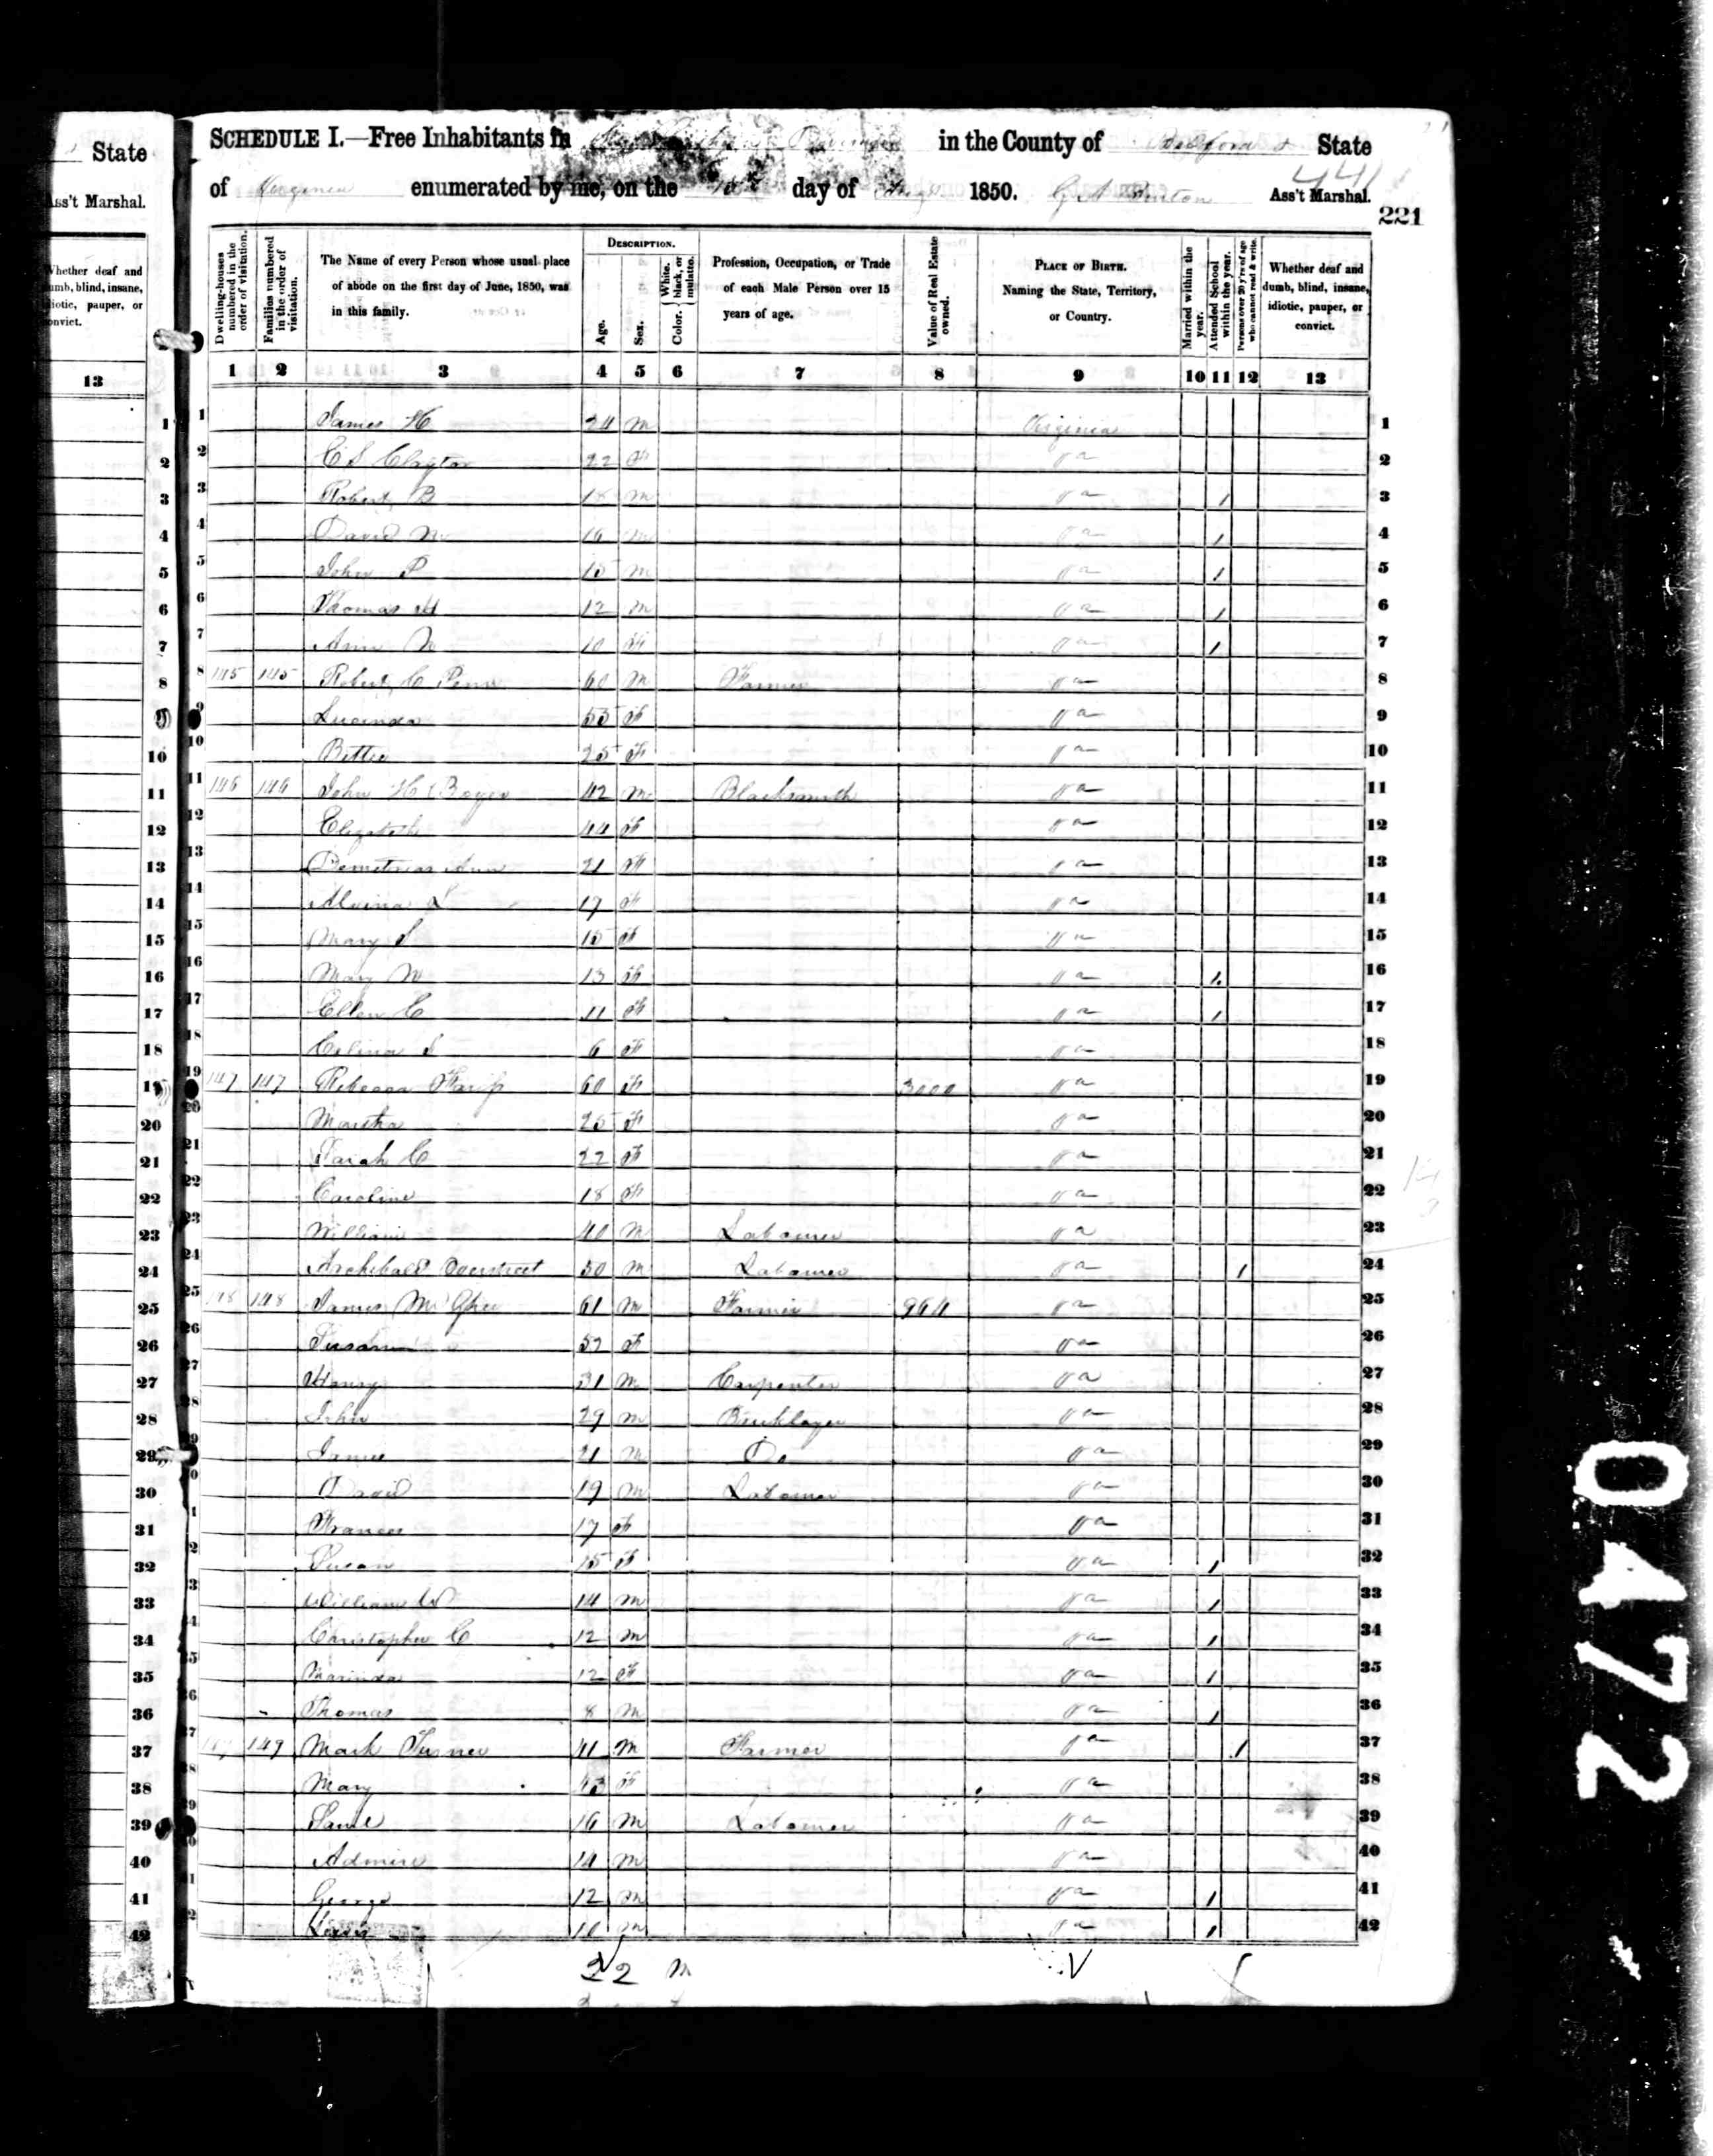 State
Ass't Marshal.
Whether deaf and
dumb, blind, insane,
idiotic, pauper, or
convict.
13
SCHEDULE I.—Free Inhabitants in in the County of Bedford State
of Virginia enumerated by me, on the day of 1850. Ass't Marshal.
441
221
Dwelling-houses numbered in the order of visitation.
Families numbered in the order of visitation.
The Name of every Person whose usual place of abode on the first day of June, 1850, was in this family.
DESCRIPTION.
Age.
Sex.
Color. White, black, or mulatto.
Profession, Occupation, or Trade of each Male Person over 15 years of age.
Value of Real Estate owned.
PLACE OF BIRTH. Naming the State, Territory, or Country.
Married within the year.
Attended School within the year.
Persons over 20 y'rs of age who cannot read & write.
Whether deaf and dumb, blind, insane, idiotic, pauper, or convict.
1 2 3 4 5 6 7 8 9 10 11 12 13
1 James H 24 m Virginia 1
2 C S Clayton 22 Va 2
3 Robert B 18 m Va 1 3
4 David M 16 m Va 1 4
5 John P 15 m Va 1 5
6 Thomas H 12 m Va 1 6
7 Ann M 10 F Va 1 7
8 145 145 Robert C Penn 60 m Farmer Va 8
9 Lucinda 55 F Va 9
10 Bettie 25 F Va 10
11 146 146 John H Boyer 42 m Blacksmith Va 11
12 Elizabeth 44 F Va 12
13 Ann 21 F Va 13
14 Alvina L 17 F Va 14
15 Mary S 15 F Va 15
16 Mary M 13 F Va 1 16
17 Ellen C 11 F Va 1 17
18 Celina S 6 F Va 18
19 147 147 Rebecca 60 F 3000 Va 19
20 Martha 25 F Va 20
21 Sarah C 22 F Va 21
22 Caroline 18 F Va 22
23 William 40 m Labourer Va 23
24 Archibald Overstreet 50 m Labourer Va 1 24
25 148 148 James McGhee 61 m Farmer 964 Va 25
26 F Va 26
27 Henry 31 m Carpenter Va 27
28 John 29 m Bricklayer Va 28
29 James 21 m Do Va 29
30 David 19 m Labourer Va 30
31 Frances 17 F Va 31
32 Susan 15 F Va 1 32
33 William W 14 m Va 1 33
34 Christopher C 12 m Va 1 34
35 12 F Va 1 35
36 Thomas 8 m Va 1 36
37 149 Mark Turner 41 m Farmer Va 1 37
38 Mary 43 F Va 38
39 Saml 16 m Labourer Va 39
40 14 m Va 40
41 George 12 m Va 1 41
42 10 m Va 1 42
22 m
0472